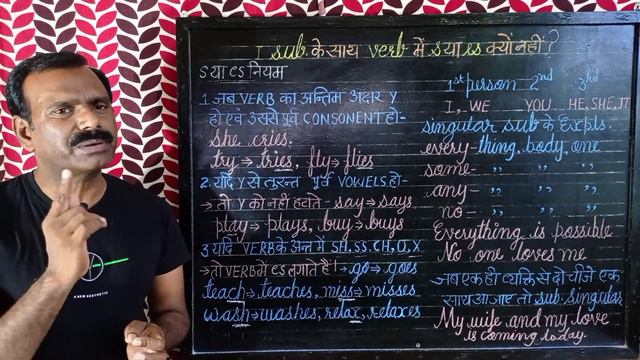 I sub के साथ verb में s या es क्यों नहीं?
S या es नियम
1. जब VERB का अन्तिम अक्षर Y
हो एवं उससे पूर्व CONSONENT हो-
She cries.
try → tries, fly → flies
2. यदि Y से तुरन्त पूर्व VOWELS हो-
→ तो Y को नहीं हटाते - say → says
play → plays, buy → buys
3 यदि VERB के अन्त में SH, SS, CH, O, X
→ तो VERB में es लगाते हैं। → go → goes
teach → teaches, miss → misses
wash → washes, relax, relaxes
1st person 2nd 3rd
I, WE YOU HE, SHE, IT
singular sub के Expls.
every - thing, body, one
some - ,, ,, ,,
any - ,, ,, ,,
no - ,, ,, ,,
Everything is possible
No one loves me
जब एक ही व्यक्ति से दो चीजे एक
साथ आ जाए तो sub. Singular
My wife and my love
is coming today.
A NEW AESTHETIC